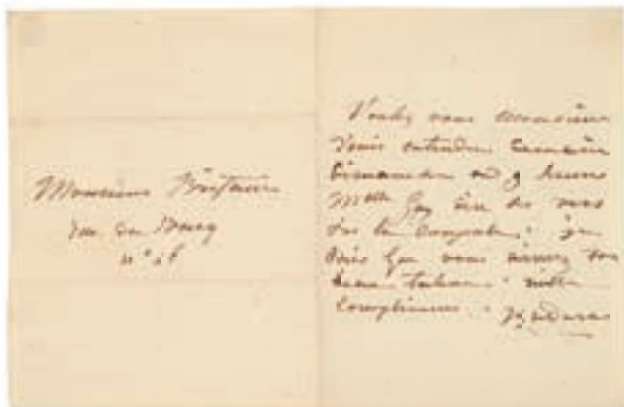 Monsieur
rue du Bacq
n°
Voulez vous Monsieur
venir entendre demain
Dimanche à 9 heures
Melle Gay lire de vers
de sa composition. je
sais que vous aimez son
beau talent. mille
complimens.